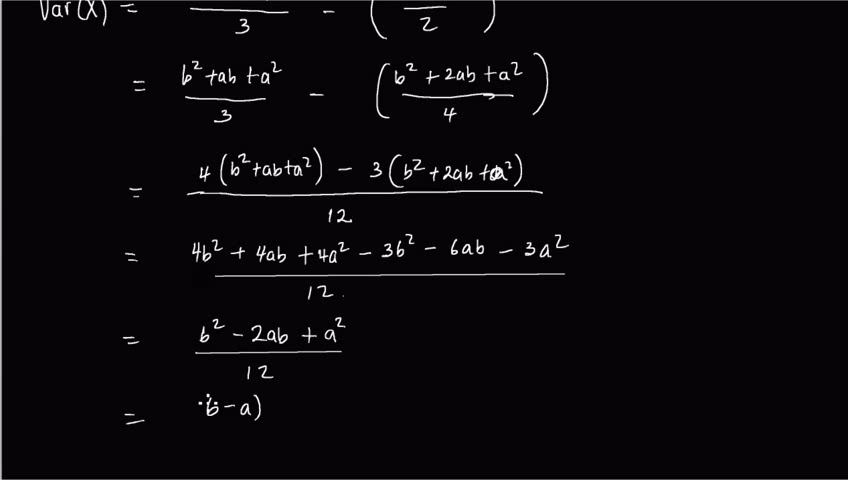 Var(X) = ― / 3 - ( ― / 2 )
= (b² + ab + a²) / 3 - ( (b² + 2ab + a²) / 4 )
= (4(b² + ab + a²) - 3(b² + 2ab + a²)) / 12
= (4b² + 4ab + 4a² - 3b² - 6ab - 3a²) / 12
= (b² - 2ab + a²) / 12
= b - a)